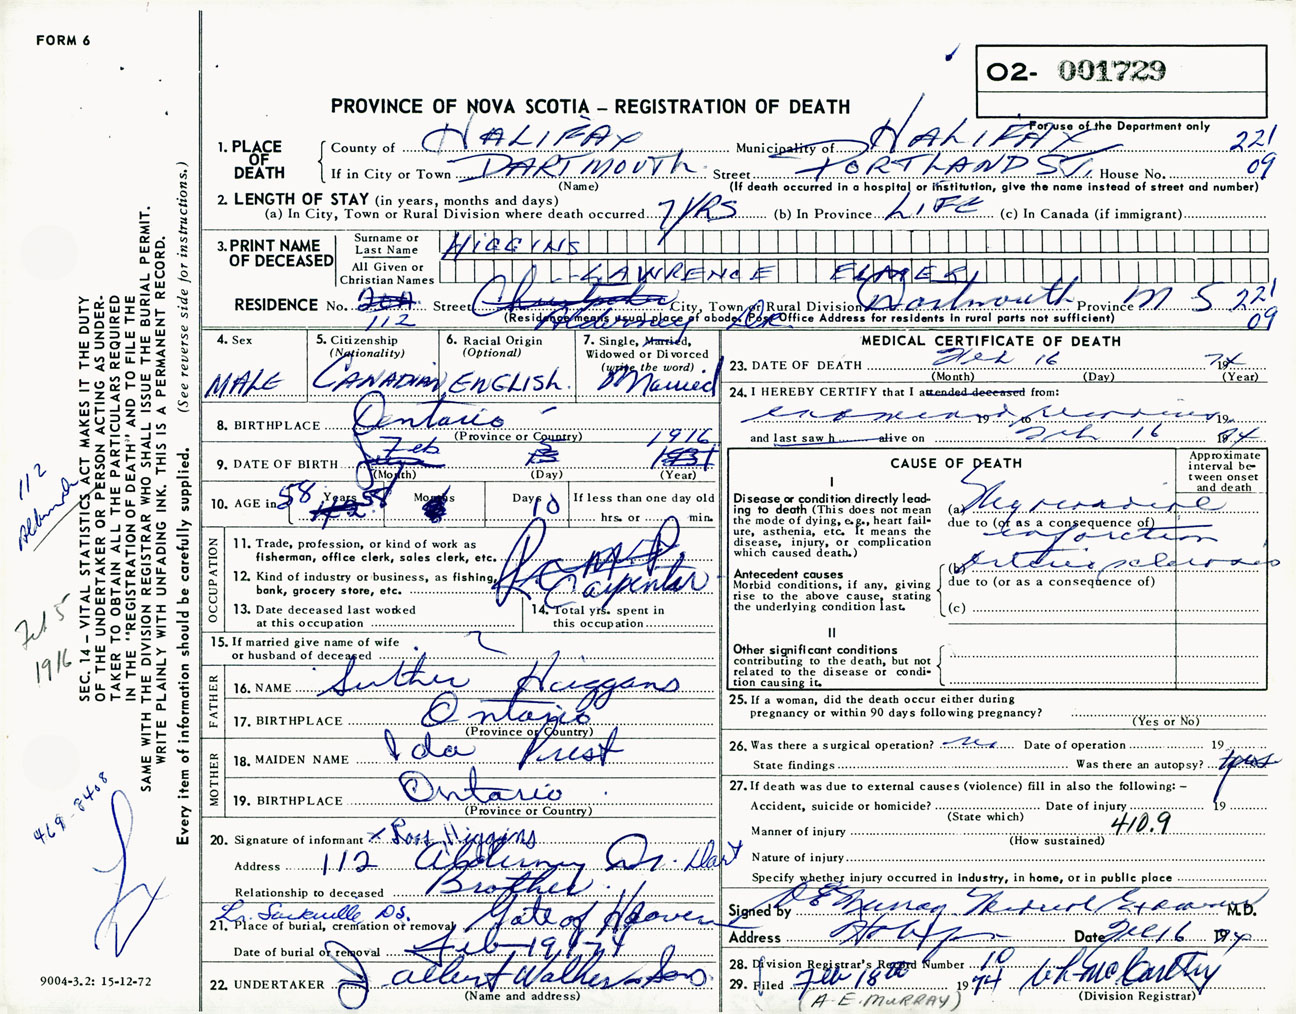 FORM 6
O2- 001729
PROVINCE OF NOVA SCOTIA – REGISTRATION OF DEATH
For use of the Department only
1. PLACE OF DEATH
County of HALIFAX Municipality of HALIFAX 221
If in City or Town DARTMOUTH Street PORTLAND ST. House No. 09
(Name) (If death occurred in a hospital or institution, give the name instead of street and number)
2. LENGTH OF STAY (in years, months and days)
(a) In City, Town or Rural Division where death occurred 7 YRS (b) In Province LIFE (c) In Canada (if immigrant)
3. PRINT NAME OF DECEASED
Surname or Last Name HIGGINS
All Given or Christian Names LAWRENCE ELMER
RESIDENCE No. Street City, Town or Rural Division Dartmouth Province N S 221
112 Alderney DR. 09
(Residence means usual place of abode. Post Office Address for residents in rural parts not sufficient)
4. Sex
MALE
5. Citizenship
(Nationality)
CANADIAN
6. Racial Origin
(Optional)
ENGLISH.
7. Single, Married,
Widowed or Divorced
(write the word)
Married
8. BIRTHPLACE Ontario
(Province or Country)
9. DATE OF BIRTH Feb 5 1916
(Month) (Day) (Year)
10. AGE in 58 Years 58 Months Days 10
If less than one day old
hrs. or min.
OCCUPATION
11. Trade, profession, or kind of work as
fisherman, office clerk, sales clerk, etc.
12. Kind of industry or business, as fishing,
bank, grocery store, etc. Carpenter
13. Date deceased last worked
at this occupation
14. Total yrs. spent in
this occupation
15. If married give name of wife
or husband of deceased ?
FATHER
16. NAME Higgans
17. BIRTHPLACE Ontario
(Province or Country)
MOTHER
18. MAIDEN NAME Ida Prest
19. BIRTHPLACE Ontario
(Province or Country)
20. Signature of informant x Ross Higgins
Address 112 Alderney Dr. Dart
Relationship to deceased Brother
Lr. Sackville
21. Place of burial, cremation or removal Gate of Heaven
Date of burial or removal Feb 19/74
22. UNDERTAKER Albert Walker & Sons
(Name and address)
MEDICAL CERTIFICATE OF DEATH
23. DATE OF DEATH Feb 16 1974
(Month) (Day) (Year)
24. I HEREBY CERTIFY that I attended deceased from:
19 to 19
and last saw h alive on Feb 16 1974
CAUSE OF DEATH
Approximate interval between onset and death
I
Disease or condition directly leading to death (This does not
mean the mode of dying, e.g., heart failure, asthenia, etc. It means the
disease, injury, or complication
which caused death.)
(a) Myocardial
due to (or as a consequence of)
infarction
(b) Arteriosclerosis
due to (or as a consequence of)
(c)
Antecedent causes
Morbid conditions, if any, giving
rise to the above cause, stating
the underlying condition last.
II
Other significant conditions
contributing to the death, but not
related to the disease or condition
causing it.
25. If a woman, did the death occur either during
pregnancy or within 90 days following pregnancy?
(Yes or No)
26. Was there a surgical operation? no Date of operation 19
State findings Was there an autopsy? yes
27. If death was due to external causes (violence) fill in also the following: –
Accident, suicide or homicide? Date of injury 19
(State which)
Manner of injury 410.9
(How sustained)
Nature of injury
Specify whether injury occurred in industry, in home, or in public place
Signed by A E Murray Medical Examiner M.D.
Address Date Feb 16 1974
28. Division Registrar's Record Number 10
29. Filed Feb 18th 1974 McCarthy
(A. E. MURRAY) (Division Registrar)
SEC. 14 – VITAL STATISTICS ACT MAKES IT THE DUTY
OF THE UNDERTAKER OR PERSON ACTING AS UNDERTAKER
TO OBTAIN ALL THE PARTICULARS REQUIRED
IN THE "REGISTRATION OF DEATH" AND TO FILE THE
SAME WITH THE DIVISION REGISTRAR WHO SHALL ISSUE THE BURIAL PERMIT.
WRITE PLAINLY WITH UNFADING INK. THIS IS A PERMANENT RECORD.
Every item of information should be carefully supplied. (See reverse side for instructions.)
112
Feb 5
1916
469-8408
9004-3.2: 15-12-72